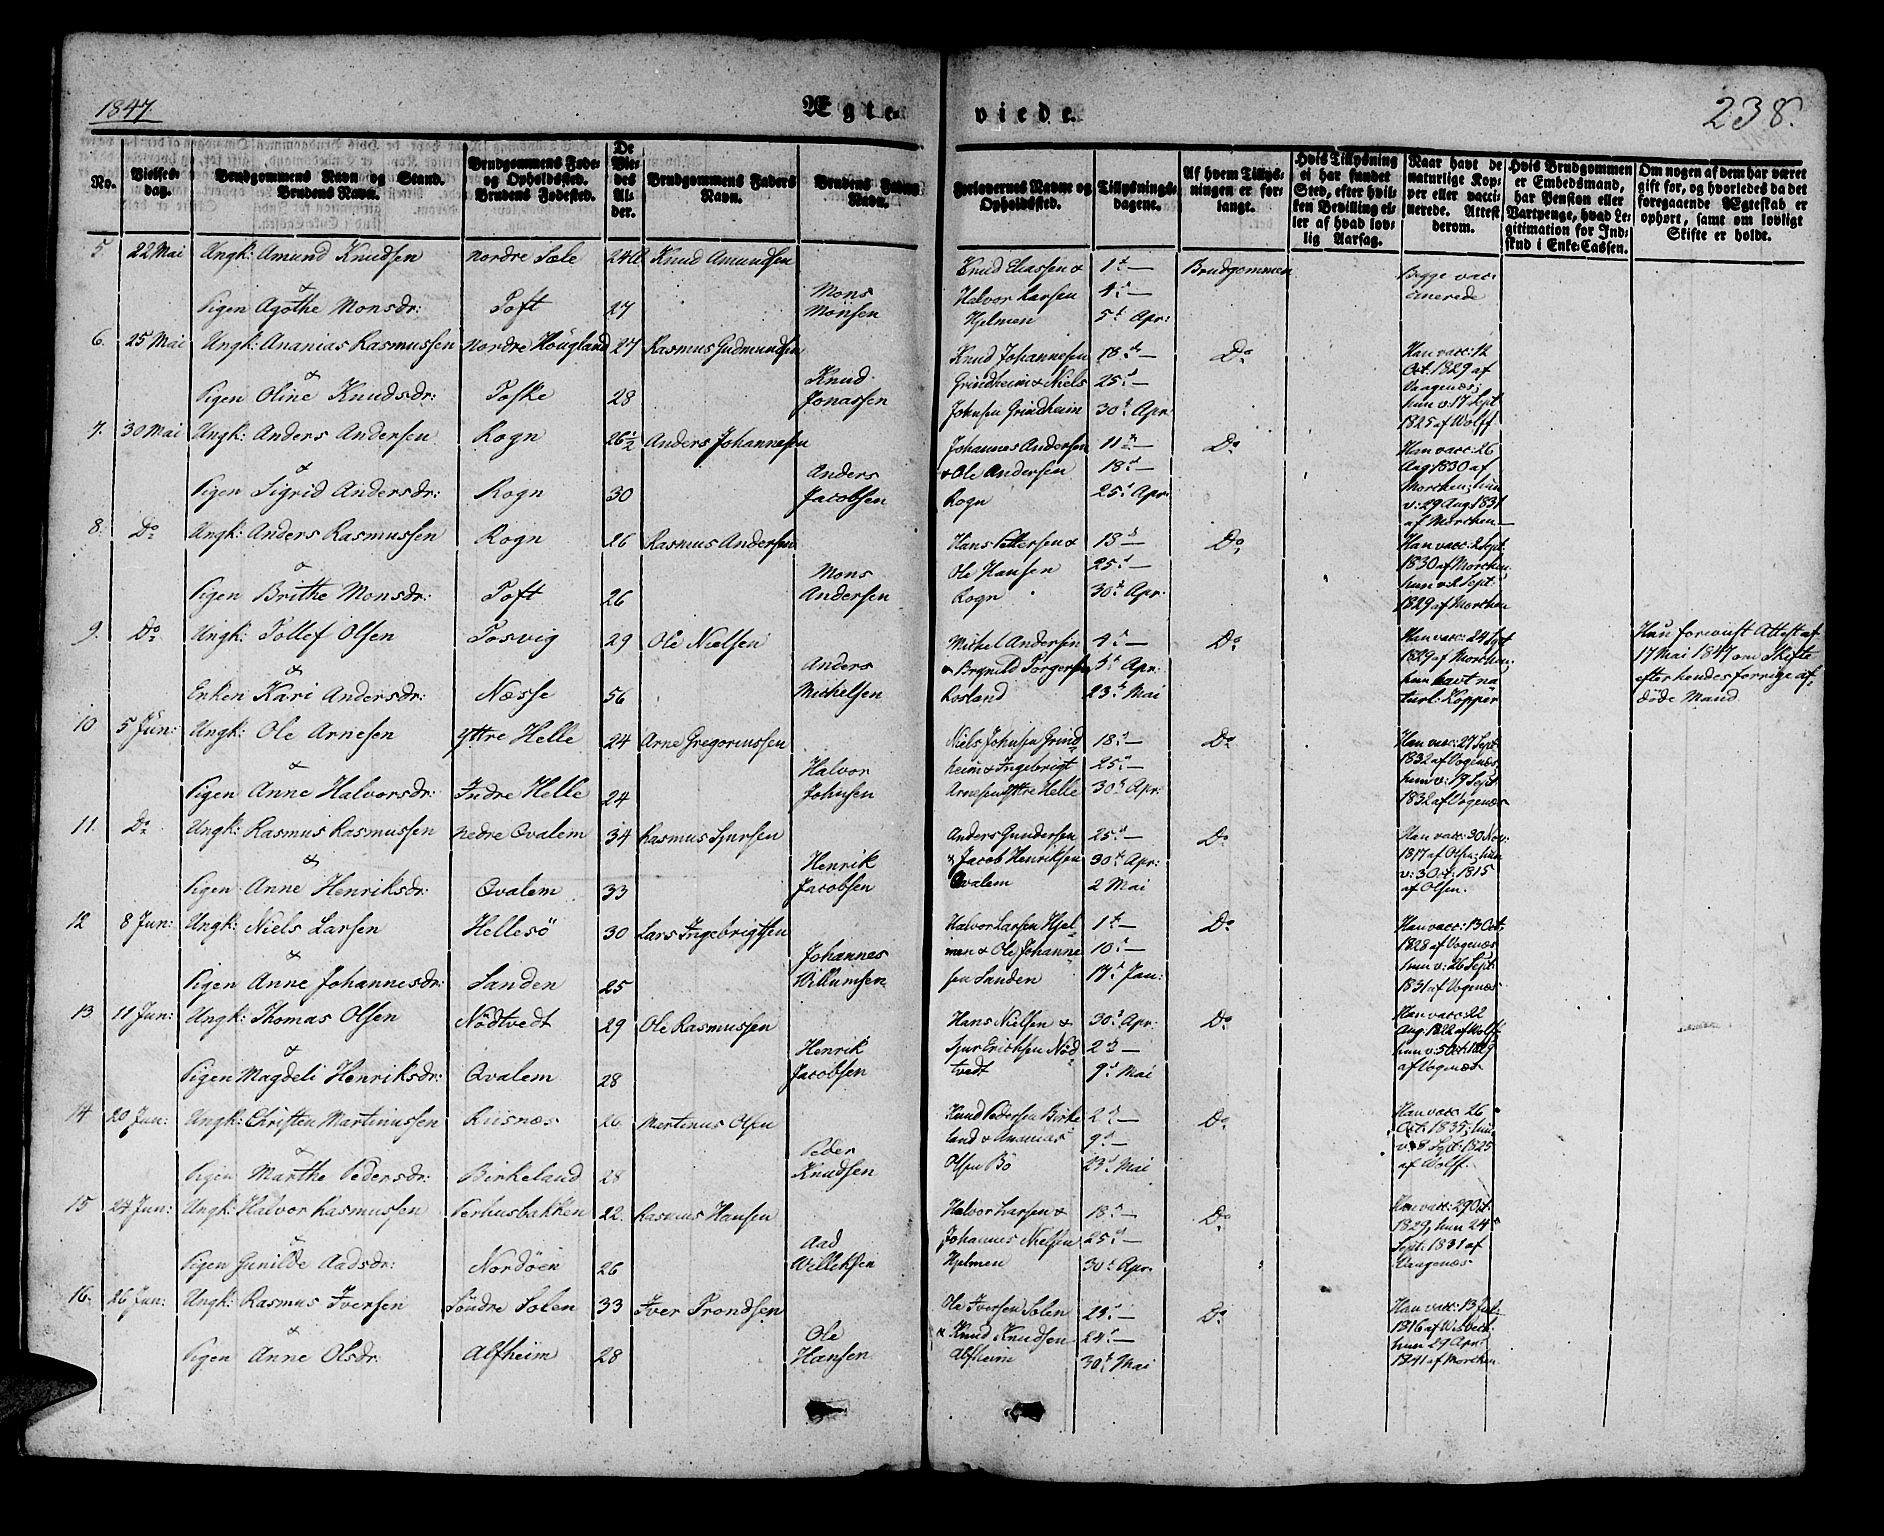 1847.
Ægte-
viede.
238.
No.
Vielses-
dag.
Brudgommens Navn og Stand.
Brudens Navn.
Brudgommens Føde-
og Opholdssted.
Brudens Fødested.
De
Vie-
des
Al-
der.
Brudgommens Faders
Navn.
Brudens Faders
Navn.
Forlovernes Navne og
Opholdssted.
Tillysnings-
dagene.
Af hvem Tillys-
ningen er for-
langt.
Hvis Tillysning
ei har fundet
Sted, efter hvil-
ken Bevilling el-
ler af hvad lov-
lig Aarsag.
Naar havt de
naturlige Kop-
per eller vacci-
nerede. Attest
derom.
Hvis Brudgommen
er Embedsmand,
har Pension eller
Vartpenge, hvad Le-
gitimation for Ind-
skud i Enke-Cassen.
Om nogen af dem har været
gift før, og hvorledes da det
foregaaende Ægteskab er
ophørt, samt om lovligt
Skifte er holdt.
5. 22 Mai Ungk: Amund Knudsen nordre Sæle 24 Knud Amundsen Knud Eliassen & 1ste — Brudgommen Begge vac-
& Mons Halvor Larsen 4d — cinerede
Pigen Agothe Monsdr: Toft 27 Monsen Hjelmen 5t Apr:
6. 25 Mai Ungk: Ananias Rasmussen nordre Hougland 27 Rasmus Gudmundsen Knud Johannesen 18d — Do Han vacc: 12
& Knud Grindheim & Niels 25d — Oct: 1829 af
Vaagenæs;
Pigen Oline Knudsdr: Toske 28 Jonassen Johnsen Grindheim 30t Apr: hun v: 17 Sept
1825 af Wolff
7. 30 Mai Ungk: Anders Andersen Rogn 26½ Anders Johannesen Johannes Andersen 11te — Do Han vacc: 26
& Anders & Ole Andersen 18d — Aug 1830 af
Pigen Sigrid Andersdr: Rogn 30 Jacobsen Rogn 25d Apr: Morchen; hun
v: 29 Aug 1831
af Morchen —
8. Do Ungk: Anders Rasmussen Rogn 26 Rasmus Andersen Hans Pettersen & 18d — Do Han vacc: 2 Sept:
& Mons Ole Hansen 25d — 1830 af Morchen
Pigen Brithe Monsdr: Toft 26 Andersen Rogn 30t Apr: hun v: 2 Sept:
1829 af Morchen
9. Do Ungk: Tollef Olsen Tosvig 29 Ole Nielsen Michel Andersen 4d — Do Han vacc: 24 Sept Hun foreviist Attest af
& Anders & Brynild Torgersen 5t Apr: 1829 af Morchen: 17 Mai 1847 om Skifte
Enken Kari Andersdr: Næsse 56 Michelsen Rosland 23d Mai hun havt na efter hendes forrige af-
turl: Kopper døde Mand
10 5 Jun: Ungk: Ole Arnesen Yttre Helle 24 Arne Gregoriussen Niels Johnsen Grind 18d — Do Han vacc: 27 Sept
& Halvor heim & Ingebrigt 25d — 1832 af Vogenæs
Pigen Anne Halvorsdr: Indre Helle 24 Johnsen Arnesen Yttre Helle 30t Apr: hun v: 19 Sept
1832 af Vogenæs
11. Do Ungk: Rasmus Rasmussen nedre Qvalem 34 Rasmus Sjursen Anders Gundersen 25d — Do Han vacc: 30 Nov:
& Henrik & Jacob Henriksen 30t Apr: 1817 af Olsen; hun
Pigen Anne Henriksdr: Qvalem 33 Jacobsen Qvalem 2 Mai v: 3 Oct: 1815
af Olsen.
12 8 Jun: Ungk: Niels Larsen Hellesö 30 Lars Ingebrigtsen Halvor Larsen Hjel- 1t — Do Han vacc: 13 Oct:
& Johannes men & Ole Johanne 10d — 1828 af Vogenæs
Pigen Anne Johannesdr: Sanden 25 Willumsen sen Sanden 17d Jan: hun v: 26 Sept:
1831 af Vogenæs
13 11 Jun: Ungk: Thomas Olsen Nödtvedt 29 Ole Rasmussen Hans Nielsen & 30t Apr: Do Han vacc: 22
& Henrik Sjur Erichsen Nöd 2d — Aug: 1822 af Wolff
Pigen Magdeli Henriksdr: Qvalem 28 Jacobsen tvedt 9d Mai hun v: 5 Oct: 1829
af Vogenæs
14 20 Jun: Ungk: Christen Martinussen Riisnæs 26 Martinus Olsen Knud Pedersen Birke 2d — Do Han vacc: 26
& Peder land & Ananias 9d — Oct: 1835; hun
Pigen Marthe Pedersdr: Birkeland 28 Knudsen Olsen Bö 23d Mai v: 8 Sept: 1825
af Wolff.
15 24 Jun: Ungk: Halvor Rasmussen Perhusbakken 22. Rasmus Hansen Halvor Larsen & 18d — Do Han vacc: 29 Oct.
& Aad Johannes Nielsen 25d — 1829, hun 24
Pigen Gunilde Aadsdr: Nordöen 26 Willeksen Hjelmen 30t Apr: Sept: 1831 af
Vaagenæs
16. 26 Jun: Ungk: Rasmus Iversen Söndre Solen 33 Iver Trondsen Ole Iversen Solen 23d — Do Han vacc: 13
& Ole & Knud Knudsen 24d — 1816 af
Pigen Anne Olsdr: Alfheim 28 Hansen Alfheim 30t Mai hun 29 Apr:
1841 af Morchen